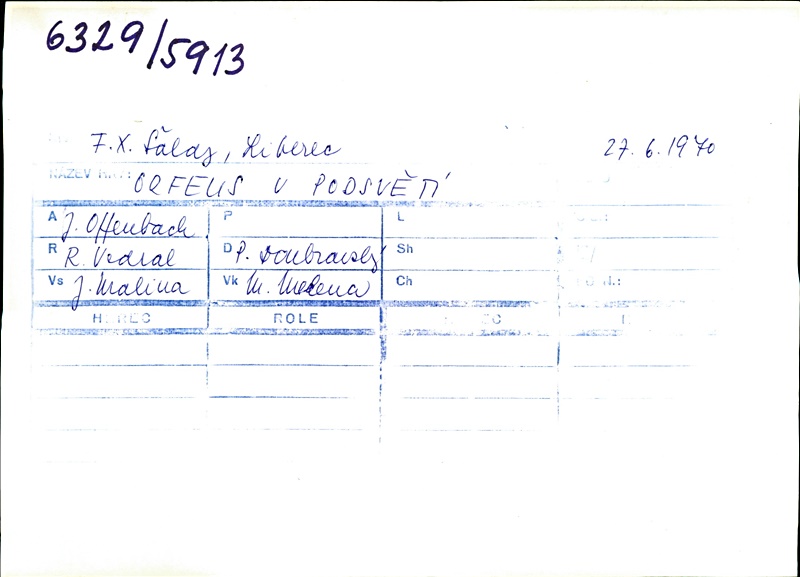 6329/5913
F.X. Šalda, Liberec 27. 6. 1970
NÁZEV ORFEUS V PODSVĚTÍ
A J. Offenbach P L
R R. Vedral D P. Doubravský Sh
Vs J. Malina Vk M. Melena Ch
ROLE